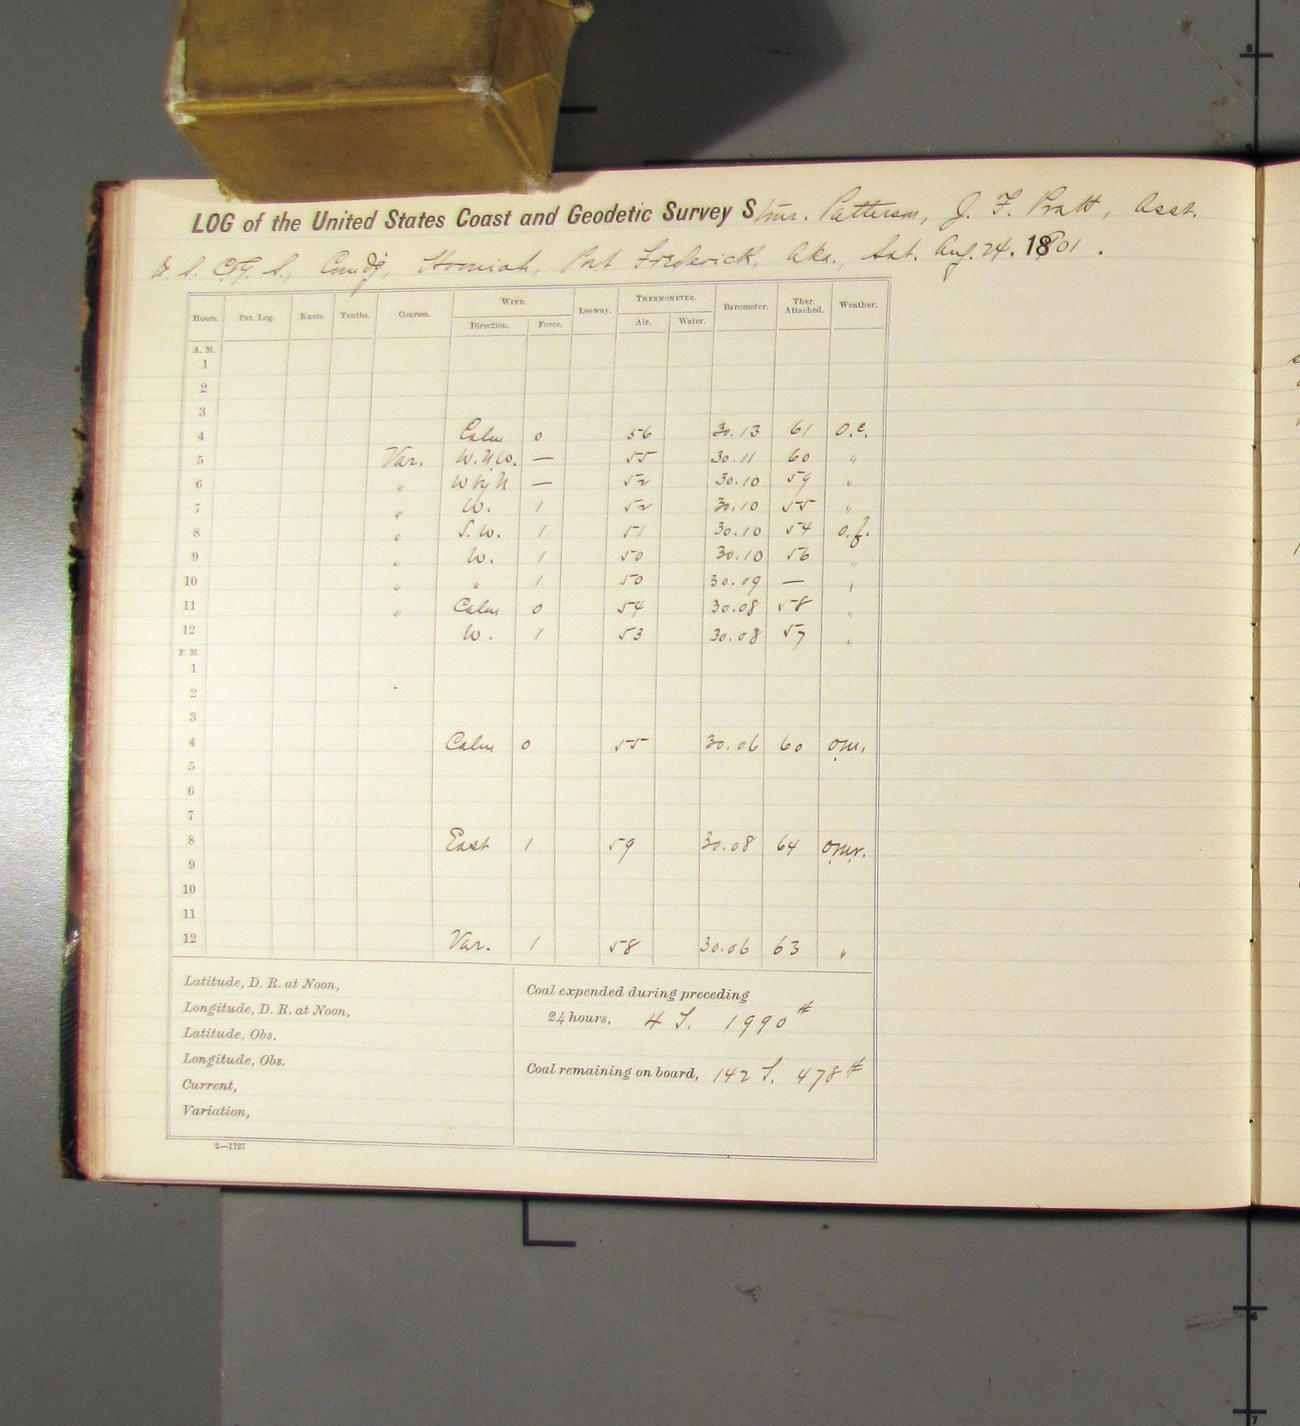 LOG of the United States Coast and Geodetic Survey Stmr. Patterson, J. F. Pratt, Asst.
U. S. C. & G. S., Comdg, Port Frederick, Aka., Sat. Aug. 24. 1901.
Hours. Pat. Log. Knots. Tenths. Courses. WIND. Leeway. THERMOMETER. Barometer. Ther. Attached. Weather.
Direction. Force. Air. Water.
A. M.
1
2
3
4 Calm 0 56 30.13 61 o.c.
5 Var. W.N.W. — 55 30.11 60 "
6 " W by N — 52 30.10 59 "
7 " W. 1 52 30.10 55 "
8 " S.W. 1 51 30.10 54 o.f.
9 " W. 1 50 30.10 56 "
10 " " 1 50 30.09 — "
11 " Calm 0 54 30.08 58 "
12 W. 1 53 30.08 57 "
P. M.
1
2
3
4 Calm 0 55 30.06 60 om.
5
6
7
8 East 1 59 30.08 64 omr.
9
10
11
12 Var. 1 58 30.06 63 "
Latitude, D. R. at Noon,
Longitude, D. R. at Noon,
Latitude, Obs.
Longitude, Obs.
Current,
Variation,
Coal expended during preceding
24 hours, 4 T. 1990 #
Coal remaining on board, 142 T. 478 #
2—1727
5
6
7